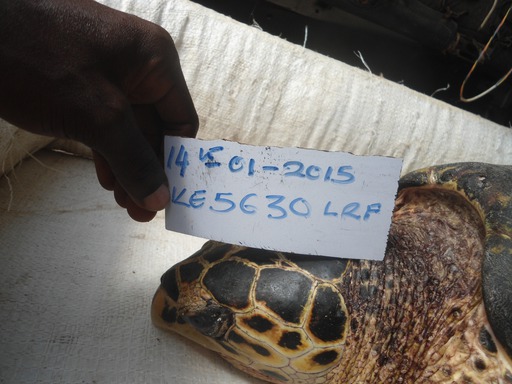 14 VE 01-2015
KE5630 LRF